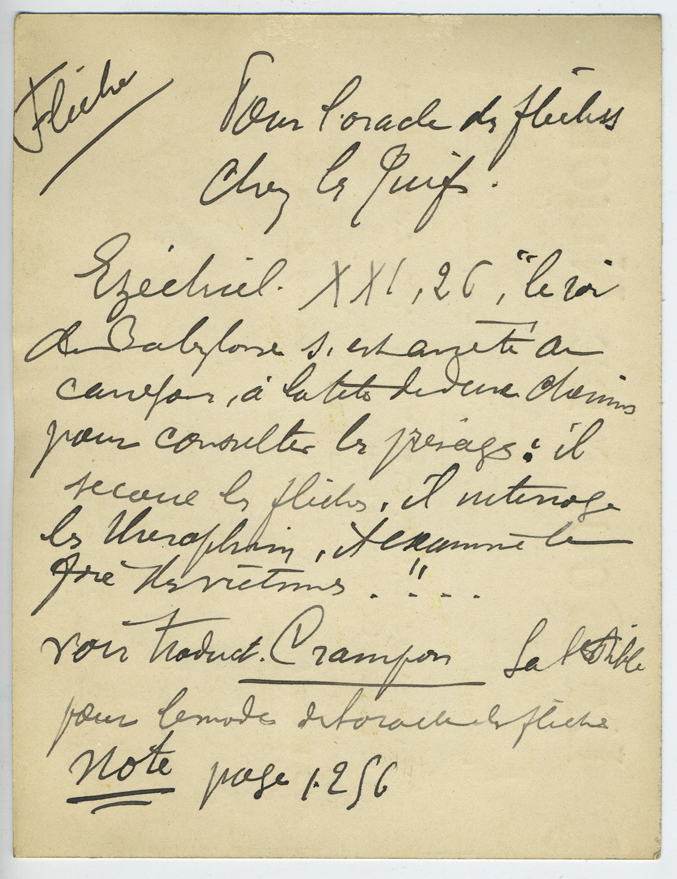 Flèche
Pour l'oracle des flèches
chez les Juifs.
Ezéchiel. XXI, 26, "le roi
de Babylone s'est arrêté au
carrefour, à la tête de deux chemins
pour consulter les présages : il
secoue les flèches, il interroge
les theraphim, il examine le
foie des victimes. "...
voir traduct. Crampon La Bible
pour le mode de l'oracle des flèches
Note page 1.256